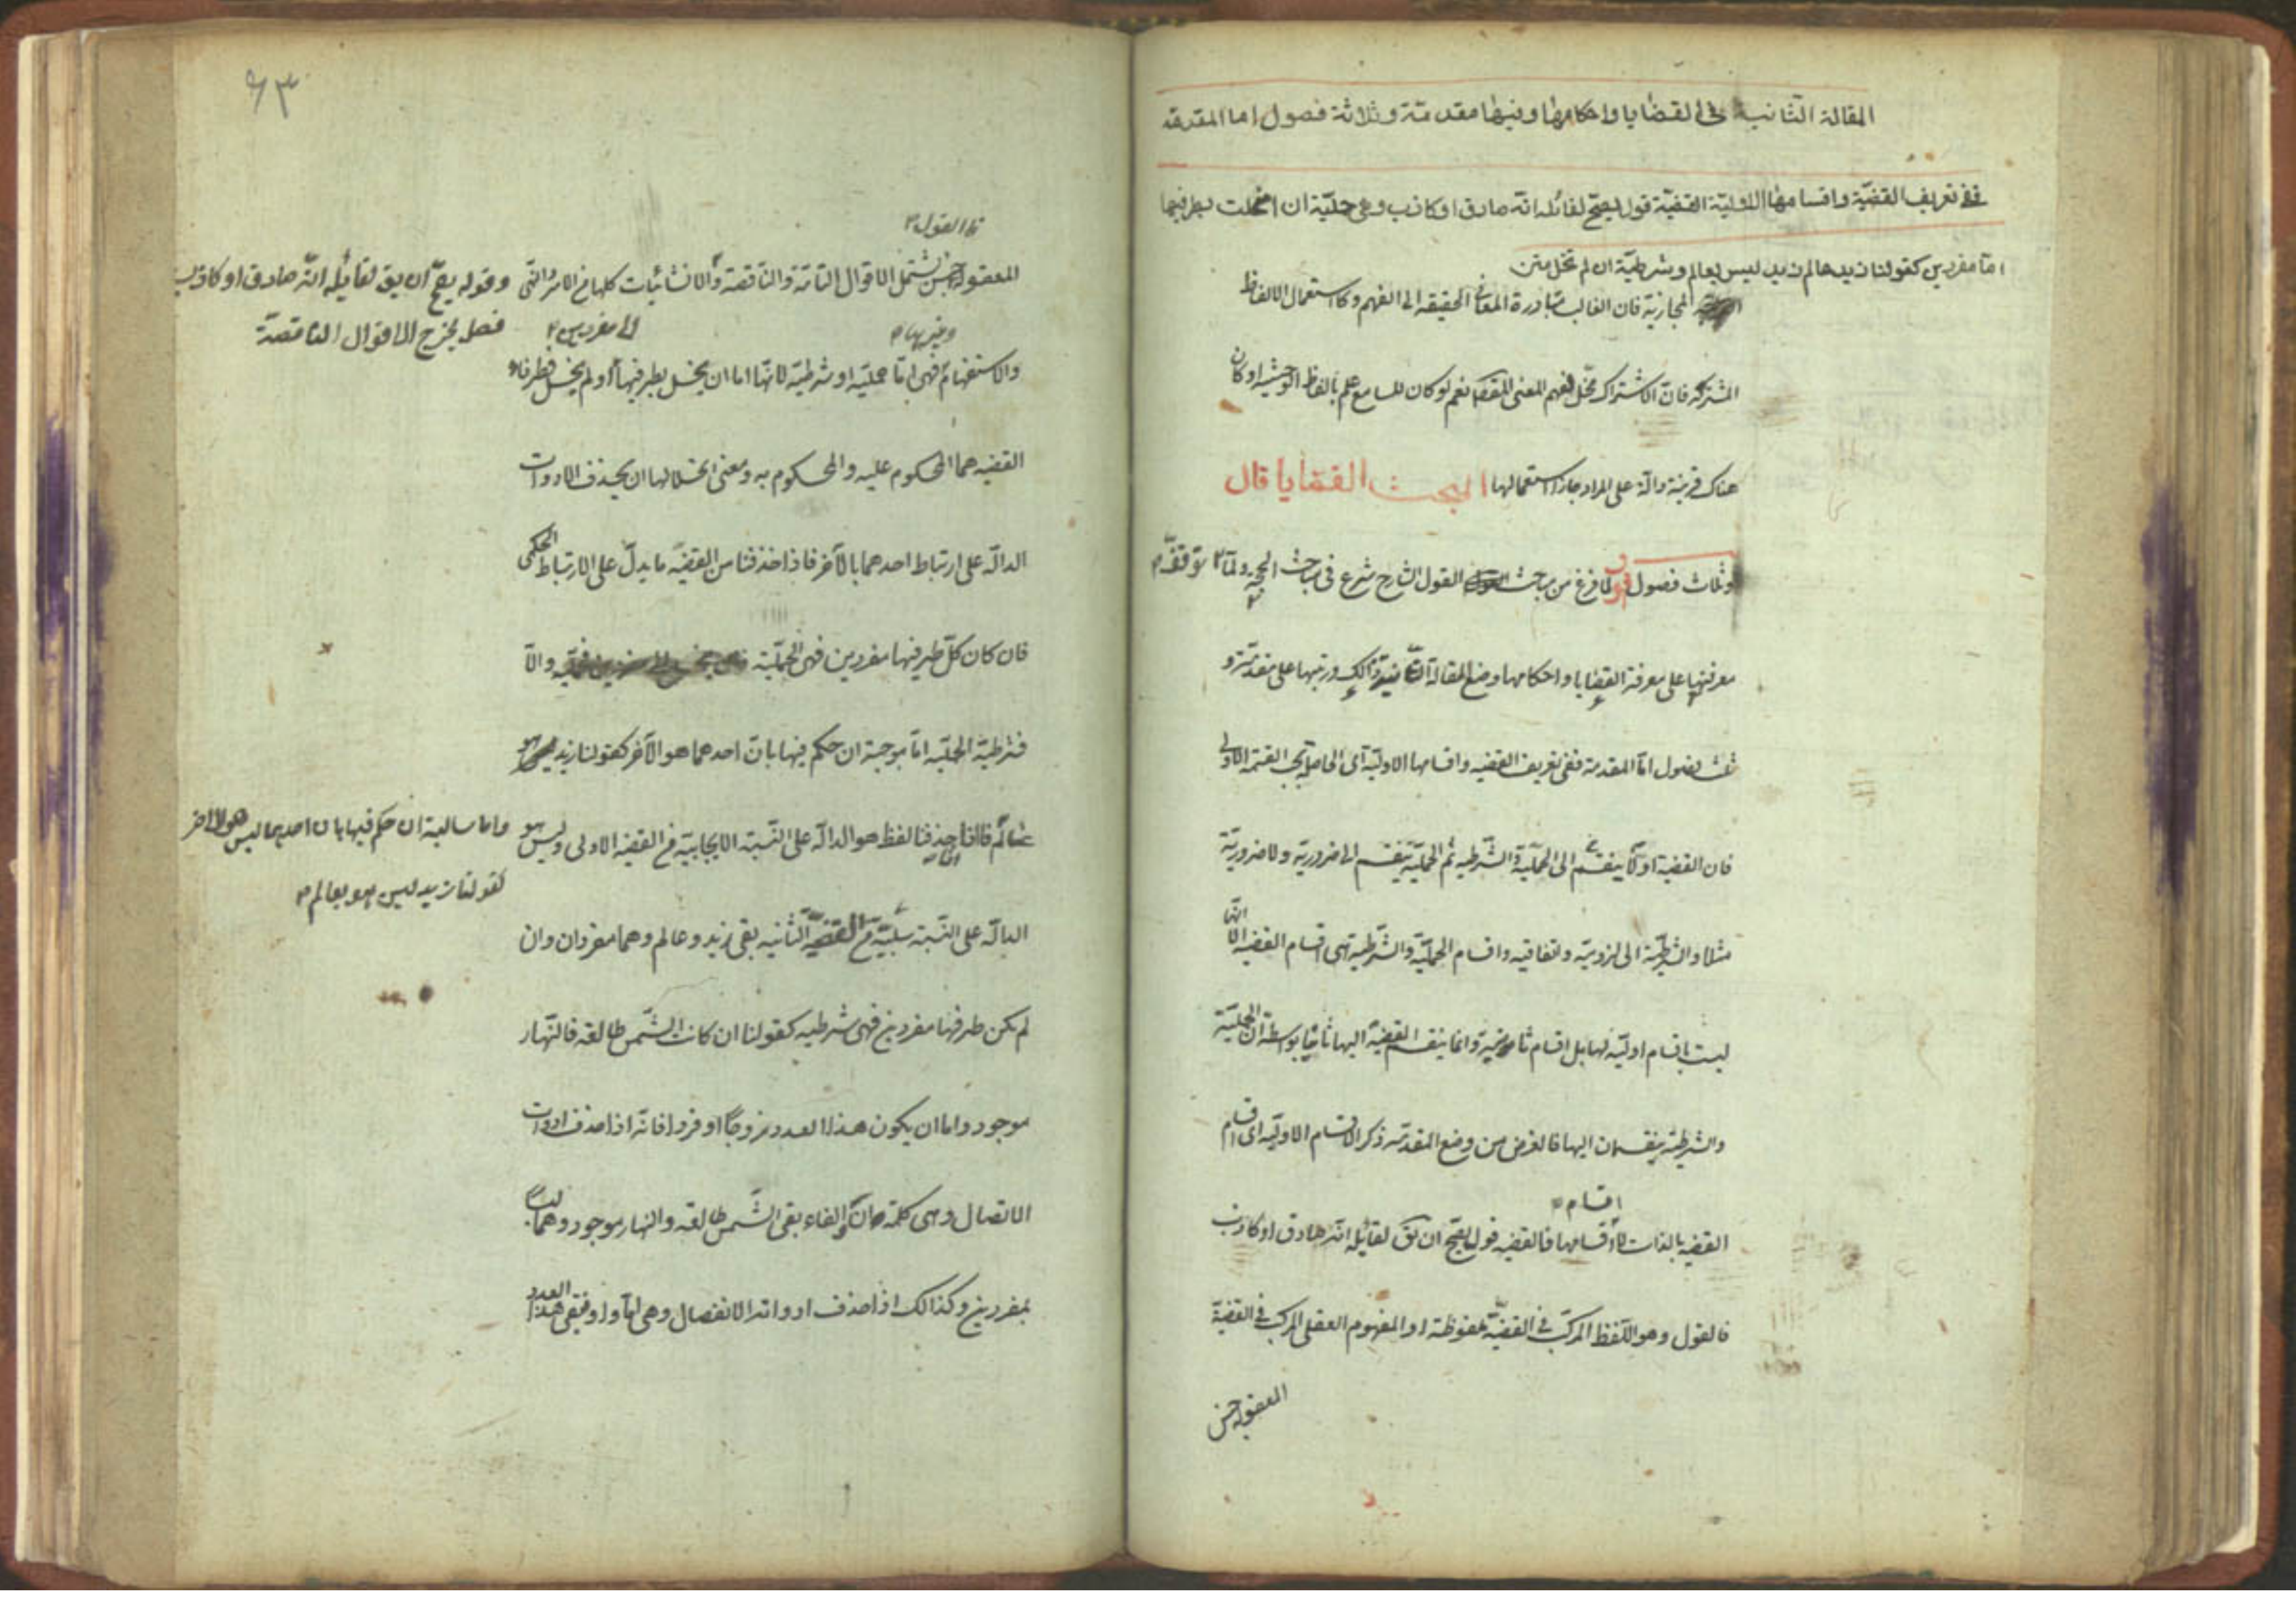 المقالة الثانية في القضايا واحكامها وفيها مقدمة وثلاثة فصول اما المقدمة
ففي تعريف القضية واقسامها الاولية القضية قول يصح لقائله انه صادق او كاذب وهي حملية ان انحلت بطرفيها
اما مفردين كقولنا زيد عالم زيد ليس بعالم وشرطية ان لم تنحل متن
المجازية فان الغالب مبادرة المعاني الحقيقه الى الفهم وكا استعمال الالفاظ
المشتركه فان الاشتراك مخل لفهم المعنى المقصد نعم لو كان للسامع علم بالفاظ الوحشيه او كان
هناك قرينة دالة على المراد جاز استعمالها المبحث القضايا قال
وثلاث فصول اقول لما فرغ من مباحث القول الشارح شرع في مباحث الحجة ولما توقف
معرفتها على معرفة القضايا واحكامها وضع المقالة الثانية لذالك ورتبها على مقدمة و
ثلث فصول اما المقدمة ففي تعريف القضيه واقسامها الاولية اى الحاصلة بحسب القسمة الاولى
فان القضية اولا ينقسم الى الحملية والشرطيه ثم الحملية ينقسم الى ضرورية ولا ضرورية
مثلا والشرطية الى لزومية واتفاقيه واقسام الحملية والشرطية هي اقسام القضيه الا انها
ليست باقسام اولية لها بل اقسام ثانوية وانما ينقسم القضية اليها ثانيا بواسطة ان الحملية
والشرطية ينقسمان اليها فالغرض من وضع المقدمه ذكر الاقسام الاولية اى اقسام
اقسام
القضيه بالذات لا اقسامها فالقضيه قول يصح ان يق لقائله انه صادق او كاذب
فالقول وهو اللفظ المركب في القضية الملفوظة او المفهوم العقلي المركب في القضية
المعقوله جنس
٦٣
فا القول
المعقوله جنس يشتمل الاقوال التامة والناقصة والانشائيات كلها من الامر والنهى وقوله يصح ان يق لقائله انه صادق او كاذب
وغيرها الى مفردين فصل يخرج الاقوال الناقصة
والاستفهام فهى اما حملية او شرطية لانها اما ان ينحل بطرفيها او لم ينحل فطرفاه
القضيه هما المحكوم عليه والمحكوم به ومعنى انحلالها ان يحذف الادوات
الدالة على ارتباط احدهما بالاخر فاذا حذفنا من القضية ما يدل على الارتباط الحكمى
فان كان كل طرفيها مفردين فهى الحملية والا
فشرطية الحملية اما موجبة ان حكم فيها بان احدهما هو الاخر كقولنا زيد هو
عالم فاذا حذفنا لفظ هو الدالة على النسبة الايجابية من القضيه الاولى وليس هو واما سالبة ان حكم فيها بان احدهما ليس هو الاخر
كقولنا زيد ليس هو بعالم
الدالة على النسبة سلبية من القضية الثانيه بقى زيد وعالم وهما مفردان وان
لم يكن طرفها مفردين فهى شرطيه كقولنا ان كانت الشمس طالعه فالنهار
موجود واما ان يكون هذا العدد زوجا او فردا فانه اذا حذف ادوات
الاتصال وهى كلمة ان والفاء بقى الشمس طالعه والنهار موجود وهما ليسا
بمفردين وكذالك اذا حذف ادوات الانفصال وهى اما واو فبقى هذا العدد